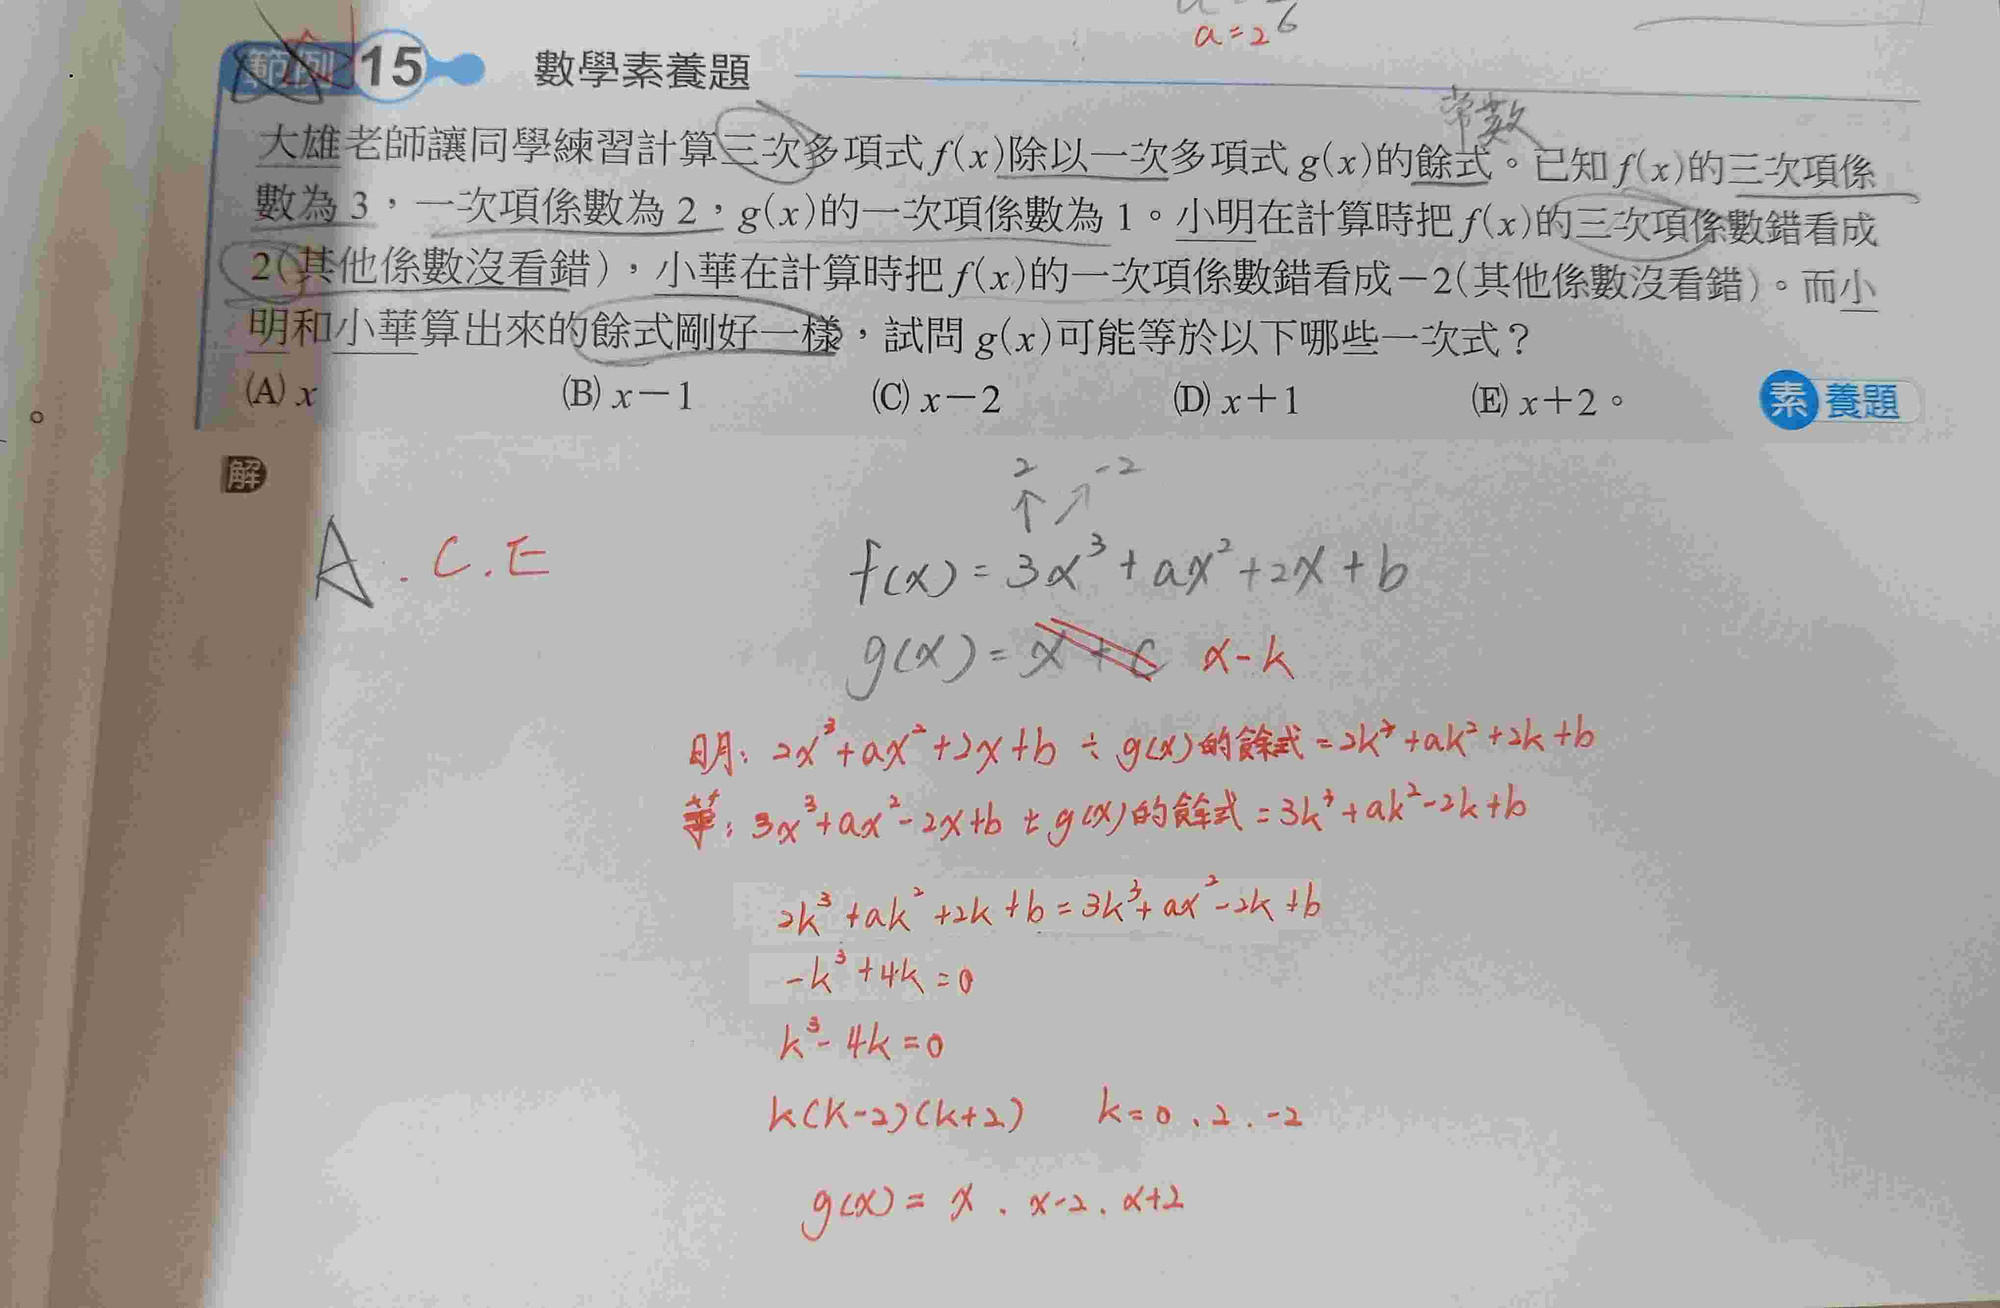 a=2 6
範例 15 數學素養題
常數
大雄老師讓同學練習計算三次多項式 f(x)除以一次多項式 g(x)的餘式。已知 f(x)的三次項係
數為 3，一次項係數為 2，g(x)的一次項係數為 1。小明在計算時把 f(x)的三次項係數錯看成
2(其他係數沒看錯)，小華在計算時把 f(x)的一次項係數錯看成－2(其他係數沒看錯)。而小
明和小華算出來的餘式剛好一樣，試問 g(x)可能等於以下哪些一次式？
(A) x (B) x－1 (C) x－2 (D) x＋1 (E) x＋2。 素養題
解
2 -2
A . C . E f(x) = 3x³ + ax² + 2x + b
g(x) = x + c x - k
明: 2x³ + ax² + 2x + b ÷ g(x) 的餘式 = 2k³ + ak² + 2k + b
華: 3x³ + ax² - 2x + b ÷ g(x) 的餘式 = 3k³ + ak² - 2k + b
2k³ + ak² + 2k + b = 3k³ + ax² - 2k + b
-k³ + 4k = 0
k³ - 4k = 0
k(k-2)(k+2) k = 0 、2 、-2
g(x) = x 、x-2 、x+2